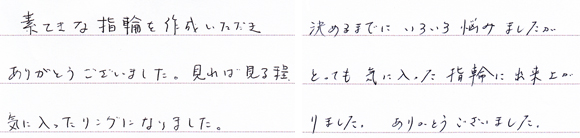 素てきな指輪を作成いただき
ありがとうございました。見れば見る程
気に入ったリングになりました。
決めるまでにいろいろ悩みましたが
とっても気に入った指輪に出来上が
りました。ありがとうございました。